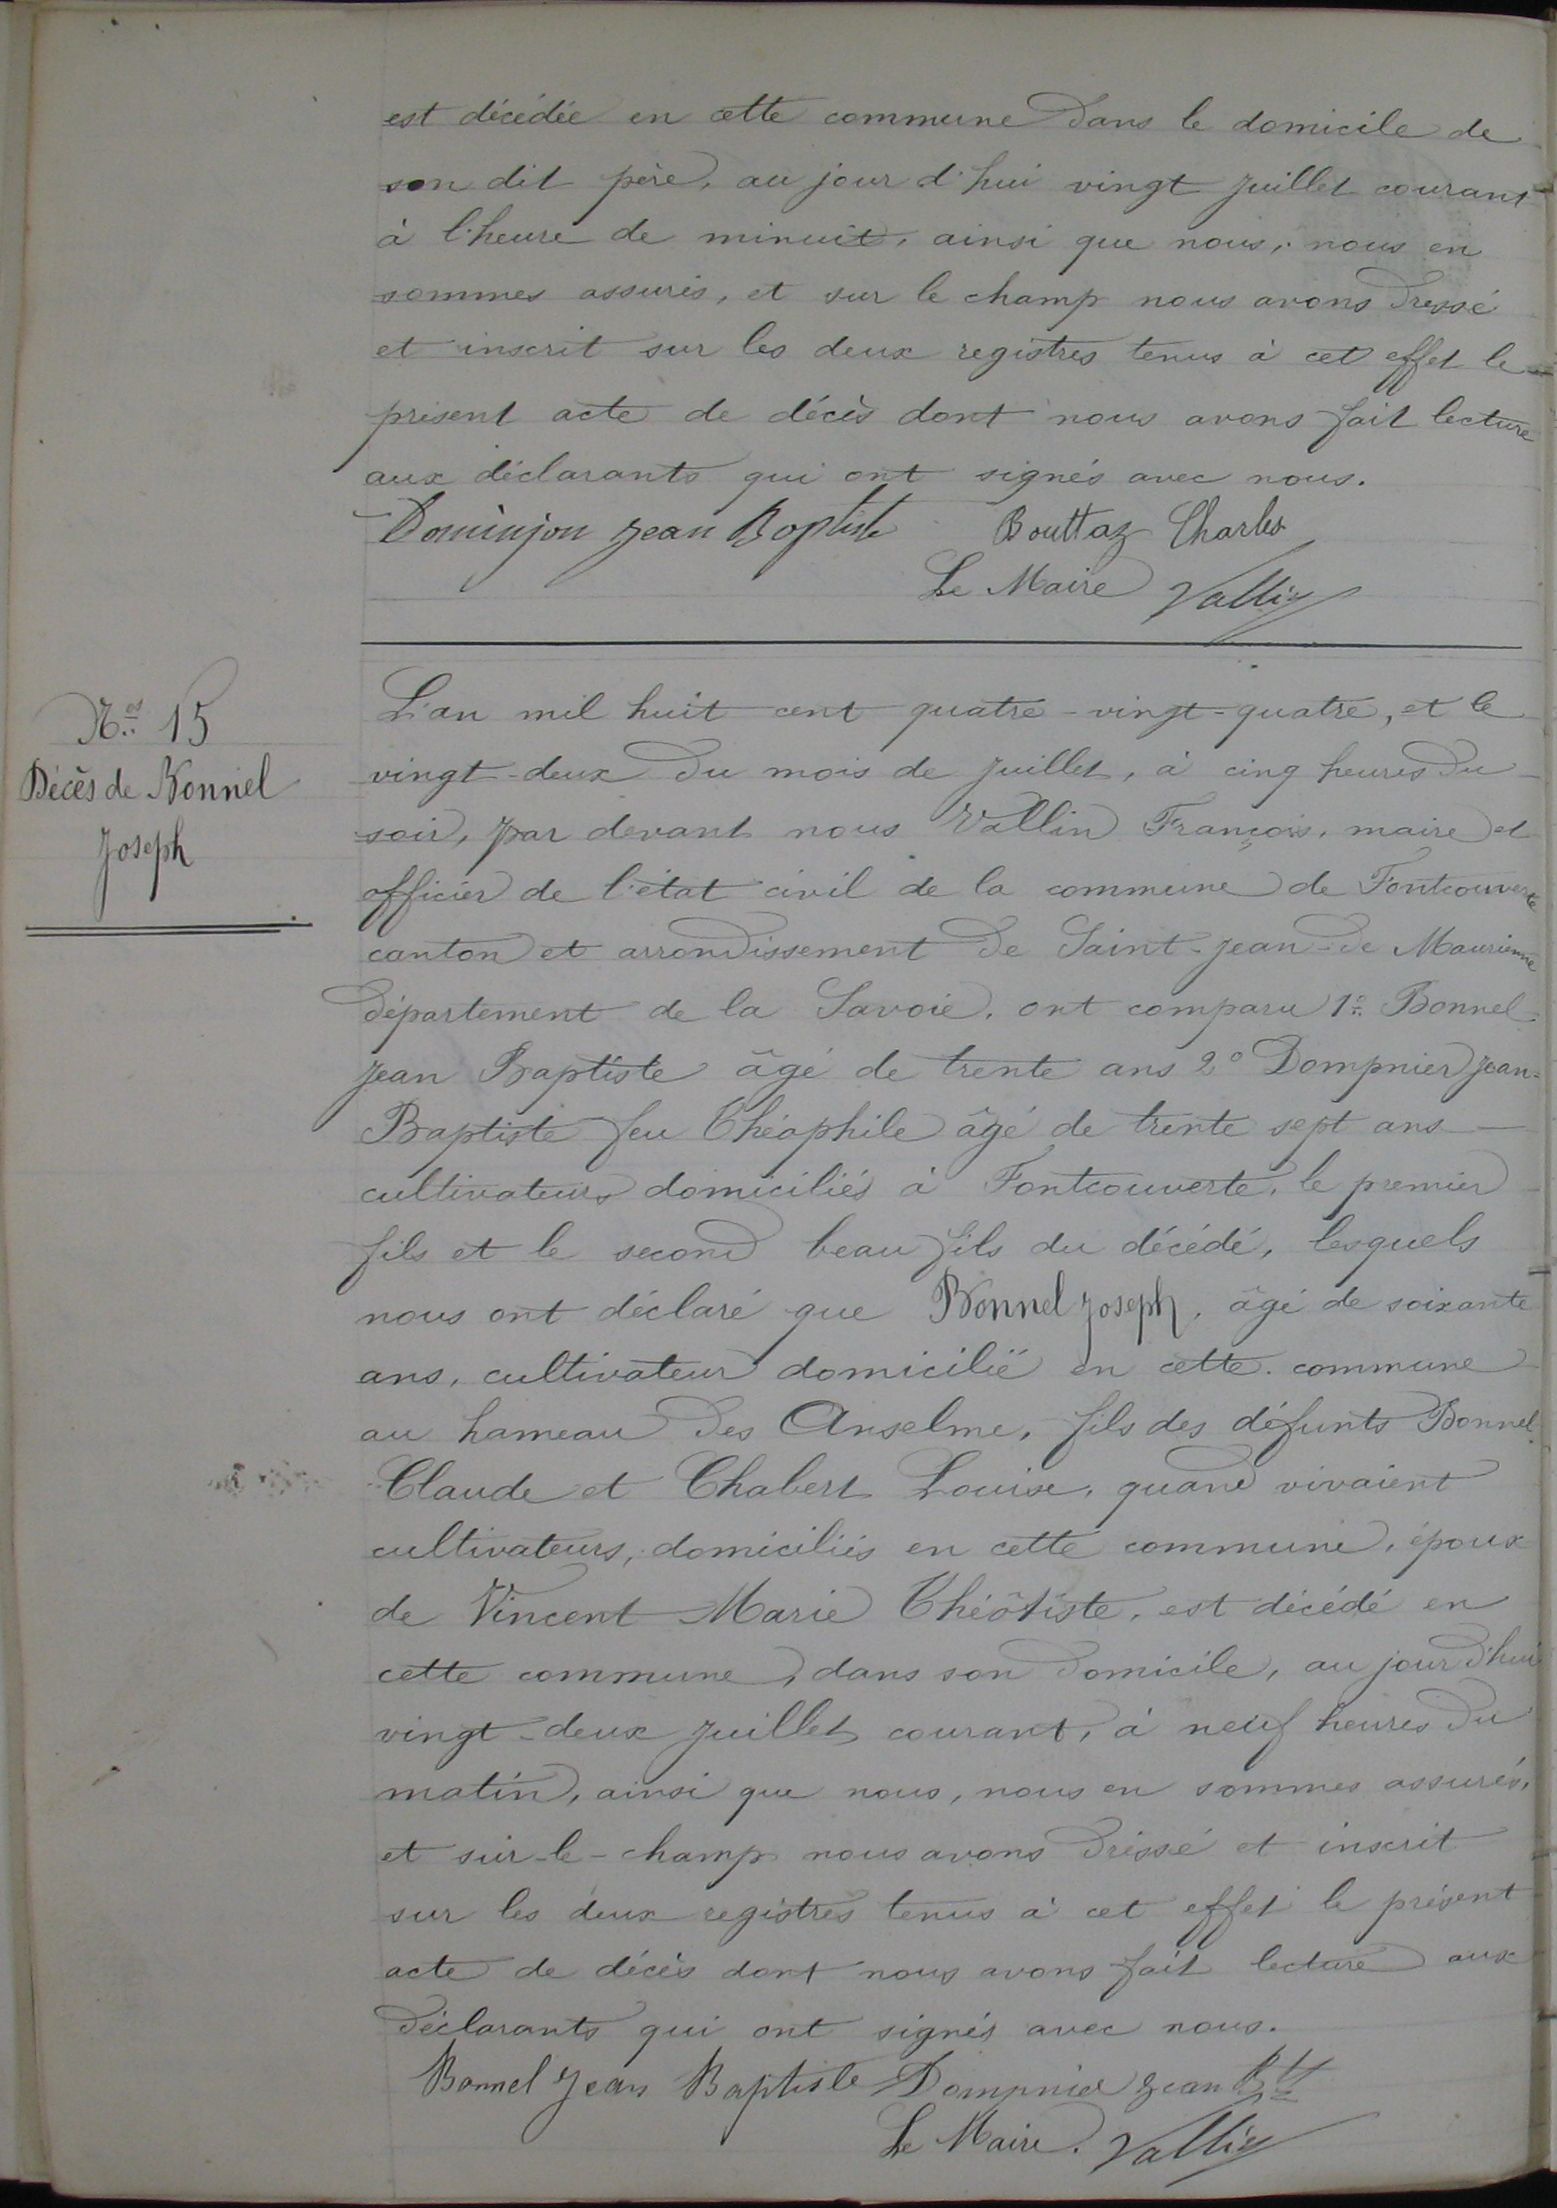 est décédée en cette commune dans le domicile de
son dit père, au jour d'hui vingt juillet courant
à l'heure de minuit, ainsi que nous, nous en
sommes assurés, et sur le champ nous avons dressé
et inscrit sur les deux registres tenus à cet effet le
présent acte de décès dont nous avons fait lecture
aux déclarants qui ont signés avec nous.
Dominjon Jean Baptiste Bouttaz Charles
Le Maire Vallin
N.os 15
Décès de Bonnel
Joseph
L'an mil huit cent quatre-vingt-quatre, et le
vingt-deux du mois de juillet, à cinq heures du
soir, par devant nous Vallin François, maire et
officier de l'état civil de la commune de Fontcouverte
canton et arrondissement de Saint-Jean-de Maurienne
département de la Savoie, ont comparu 1° Bonnel
Jean Baptiste âgé de trente ans 2° Dompnier Jean-
Baptiste feu Théophile âgé de trente sept ans
cultivateurs domiciliés à Fontcouverte, le premier
fils et le second beau fils du décédé, lesquels
nous ont déclaré que Bonnel Joseph, âgé de soixante
ans, cultivateur domicilié en cette commune
au hameau des Anselme, fils des défunts Bonnel
Claude et Chabert Louise, quand vivaient
cultivateurs, domiciliés en cette commune, époux
de Vincent Marie Théôtiste, est décédé en
cette commune, dans son domicile, au jour d'hui
vingt-deux juillet courant, à neuf heures du
matin, ainsi que nous, nous en sommes assurés,
et sur-le-champ nous avons dressé et inscrit
sur les deux registres tenus à cet effet le présent
acte de décès dont nous avons fait lecture aux
déclarants qui ont signés avec nous.
Bonnel Jean Baptiste Dompnier Jean Bte
Le Maire. Vallin